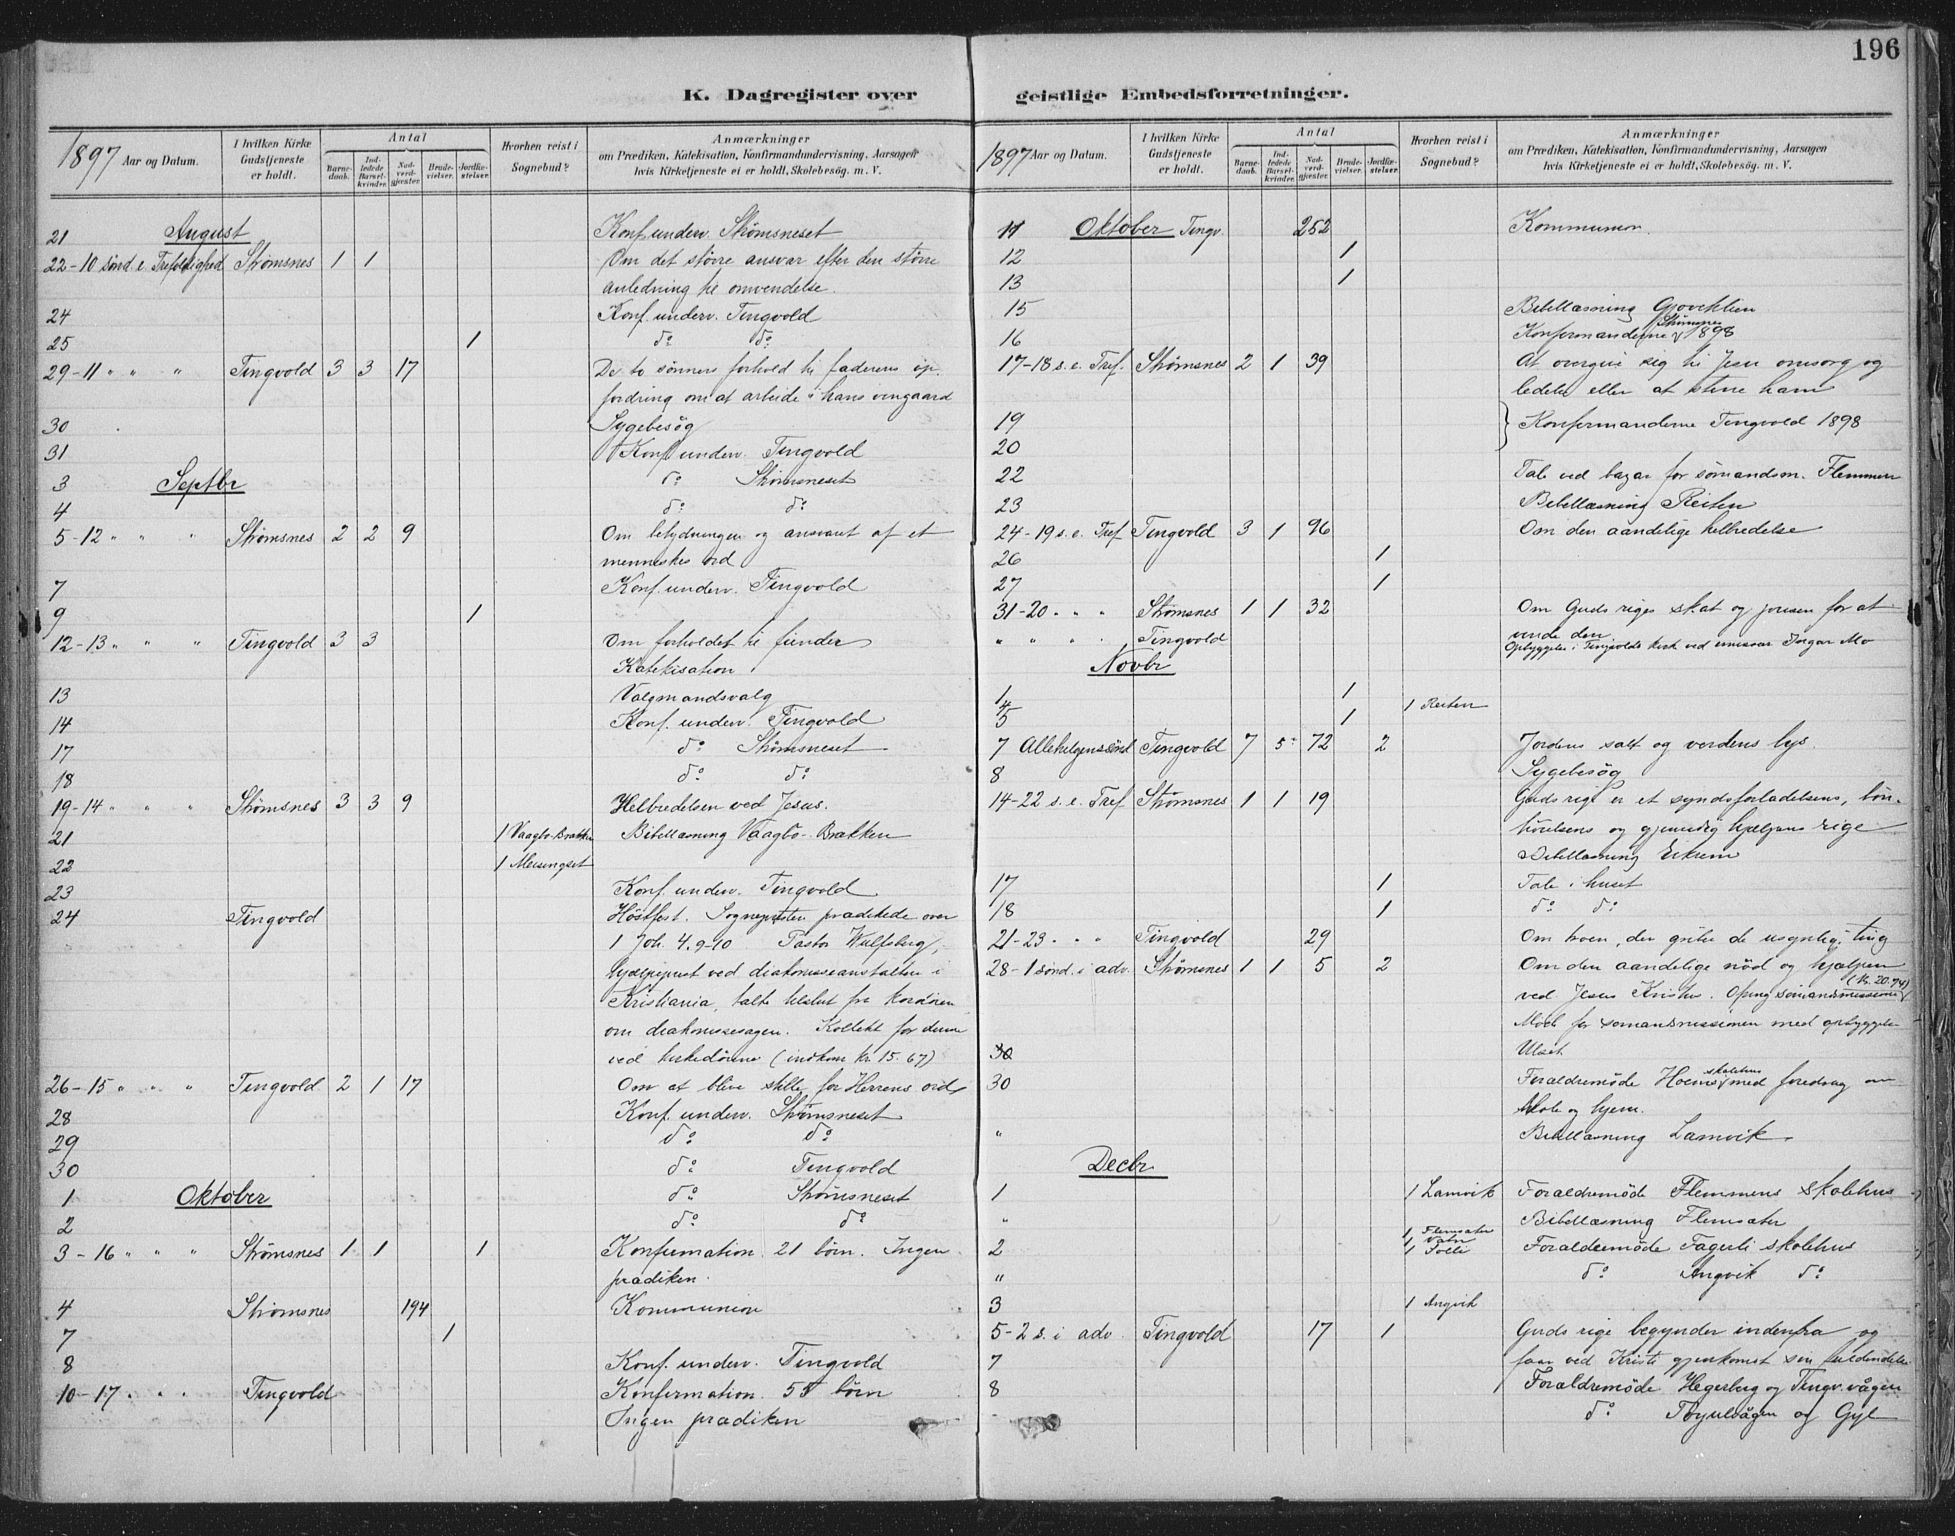 196
K. Dagregister over
1897 Aar og Datum. I hvilken Kirke Gudstjeneste er holdt. Antal Barnedaab. Indledede Barselkvinder. Nadverdgjester. Brudevielser. Jordfæstelser. Hvorhen reist i Sognebud? Anmærkninger
om Prædiken, Katekisation, Konfirmandundervisning, Aarsagen
hvis Kirketjeneste ei er holdt, Skolebesög. m. V.
August
21 Konf. underv. Strømsneset
22-10 sönd e. Trefoldighed Strømsnes 1 1 Om det större ansvar efter den större
anledning til omvendelse.
24 Konf. underv. Tingvold
25 1 do do
29-11 " " " Tingvold 3 3 17 De to sönners forhold til faderens op
fordring om at arbeide i hans vingaard
30 Sygebesög
31 Konf. underv. Tingvold
Septbr
3 do Strømsneset
4 do do
5-12 " " " Strømsnes 2 2 9 Om betydningen og ansvaret af et
menneskes ord
7 Konf. underv. Tingvold
9 1
12-13 " " " Tingvold 3 3 Om forholdet til fiender
Katekisation
13 Valgmandsvalg
14 Konf. underv. Tingvold
17 do Strømsneset
18 do do
19-14 " " " Strømsnes 3 3 9 Helbredelsen ved Jesus.
21 1 Vaagbö-Brækken Bibellæsning Vaagbö-Brækken
22 1 Meisingset
23 Konf. underv. Tingvold
24 Tingvold Höstfest. Sognepresten prædikede over
1 Joh. 4. 9-10 Pastor Wulfsberg,
hjælpeprest ved diakonisseanstalten i
Kristiania, talte tilslut fra kordören
om diakonissesagen. Kollekt for denne
ved kirkedörene (indkom kr. 15.67)
26-15 " " " Tingvold 2 1 17 Om at blive stille for Herrens ord
28 Konf. underv. Strømsneset
29 do do
30 do Tingvold
1 Oktober do Strømsneset
2 do do
3-16 " " " Strømsnes 1 1 1 Konfirmation. 21 börn. Ingen
prædiken.
4 Strømsnes 194 Kommunion
7 1
8 Konf. underv. Tingvold
10-17 " " Tingvold Konfirmation. 55 börn
Ingen prædiken
geistlige Embedsforretninger.
1897 Aar og Datum. I hvilken Kirke Gudstjeneste er holdt. Antal Barnedaab. Indledede Barselkvinder. Nadverdgjester. Brudevielser. Jordfæstelser. Hvorhen reist i Sognebud? Anmærkninger
om Prædiken, Katekisation, Konfirmandundervisning, Aarsagen
hvis Kirketjeneste ei er holdt, Skolebesög. m. V.
11 Oktober Tingv. 252 Kommunion.
12 1
13 1
15 Bibellæsning
16 Konfermanderne Strømsnes 1898
17-18 s. e. Tref. Strømsnes 2 1 39 At overgive sig til Jesu omsorg og
ledelse eller at stene ham
19 Konfermanderne Tingvold 1898
20
22 Tale ved bazar for sömandsm. Flemmen
23 Bibellæsning Reiten
24-19 s. e. Tref Tingvold 3 1 96 Om den aandelige helbredelse
26 1
27 1
31-20 " " Strømsnes 1 1 32 Om Guds riges skat og prisen for at
vinde den.
" " " " Tingvold Opbyggelse i Tingvolds kirke ved emissær Ingar Mo
Novbr
1 1
4 1 Reiten
5 1
7 Allehelgenssönd Tingvold 7 5 72 2 Jordens salt og verdens lys.
8 Sygebesög
14-22 s. e. Tref Strømsnes 1 1 19 Guds rige er et syndsforladelsens, bön-
hörelsens og gjensidig hjælpens rige
Bibellæsning Eikrem
17 1 Tale i huset
18 1 do do
21-23 " " Tingvold 29 Om troen, der griber de usynlige ting
28-1 sönd. i adv. Strømsnes 1 1 5 2 Om den aandelige nöd og hjælpen
ved Jesus Kristus. Ofring sömandsmissionen (kr. 20.74)
Möde for sömandsmissionen med opbyggelse
30 Ulset
30 Forældremöde Hoems skolehus med foredrag om
skole og hjem.
" Bibellæsning Lamvik.
Decbr
1 1 Lamvik Forældremöde Flemmens skolehus
" Bibellæsning Flemsæter
1 Flemsæter
1 Vatn
2 1 Solli Forældremöde Fagerli skolehus
" do Angvik do
3 1 Angvik
5-2 s. i adv. Tingvold 17 1 Guds rige begynder indenfra og
7 faar ved Kristi gjenkomst sin fuldendelse
8 Forældremöde Hegerberg og Tingv.vågen
do og Gyl